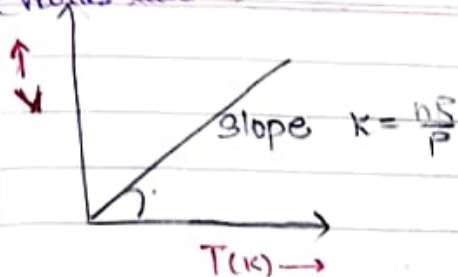 ↑
V
slope K = nS/P
T(K) →